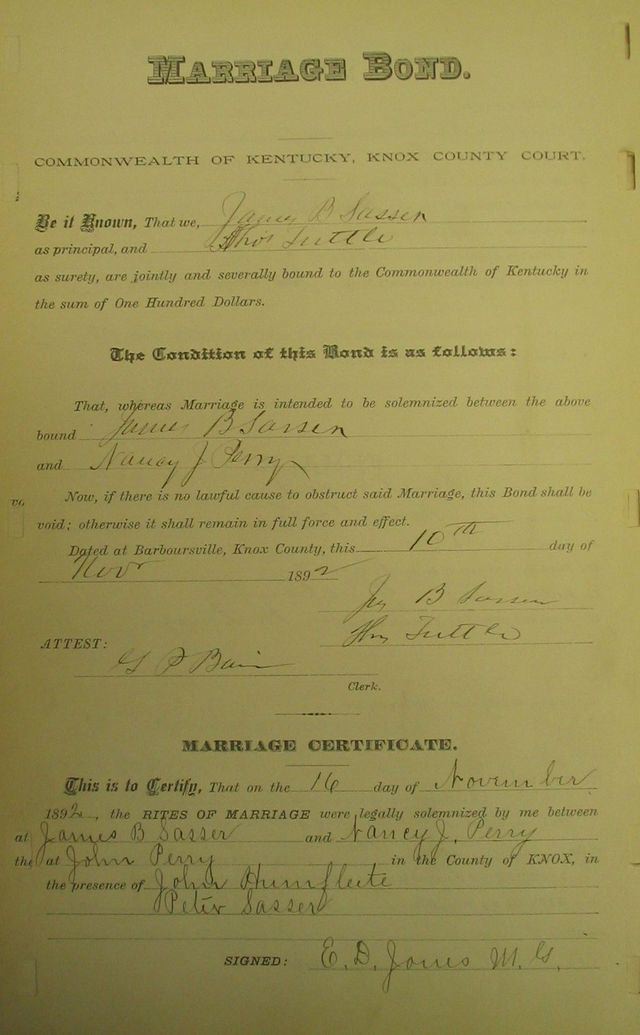 MARRIAGE BOND.
COMMONWEALTH OF KENTUCKY, KNOX COUNTY COURT.
Be it Known, That we, James B Sasser
as principal, and Thos Tuttle
as surety, are jointly and severally bound to the Commonwealth of Kentucky in
the sum of One Hundred Dollars.
The Condition of this Bond is as follows:
That, whereas Marriage is intended to be solemnized between the above
bound James B Sasser
and Nancy J Perry
Now, if there is no lawful cause to obstruct said Marriage, this Bond shall be
vo.
void; otherwise it shall remain in full force and effect.
Dated at Barboursville, Knox County, this 10th day of
Nov 1892
Jas B Sasser
Thos Tuttle
ATTEST:
Clerk.
MARRIAGE CERTIFICATE.
This is to Certify, That on the 16 day of November
1892, the RITES OF MARRIAGE were legally solemnized by me between
at James B Sasser and Nancy J. Perry
the at John Perry in the County of KNOX, in
the presence of John Humfleite
Peter Sasser
SIGNED: E. D. Jones M. G.